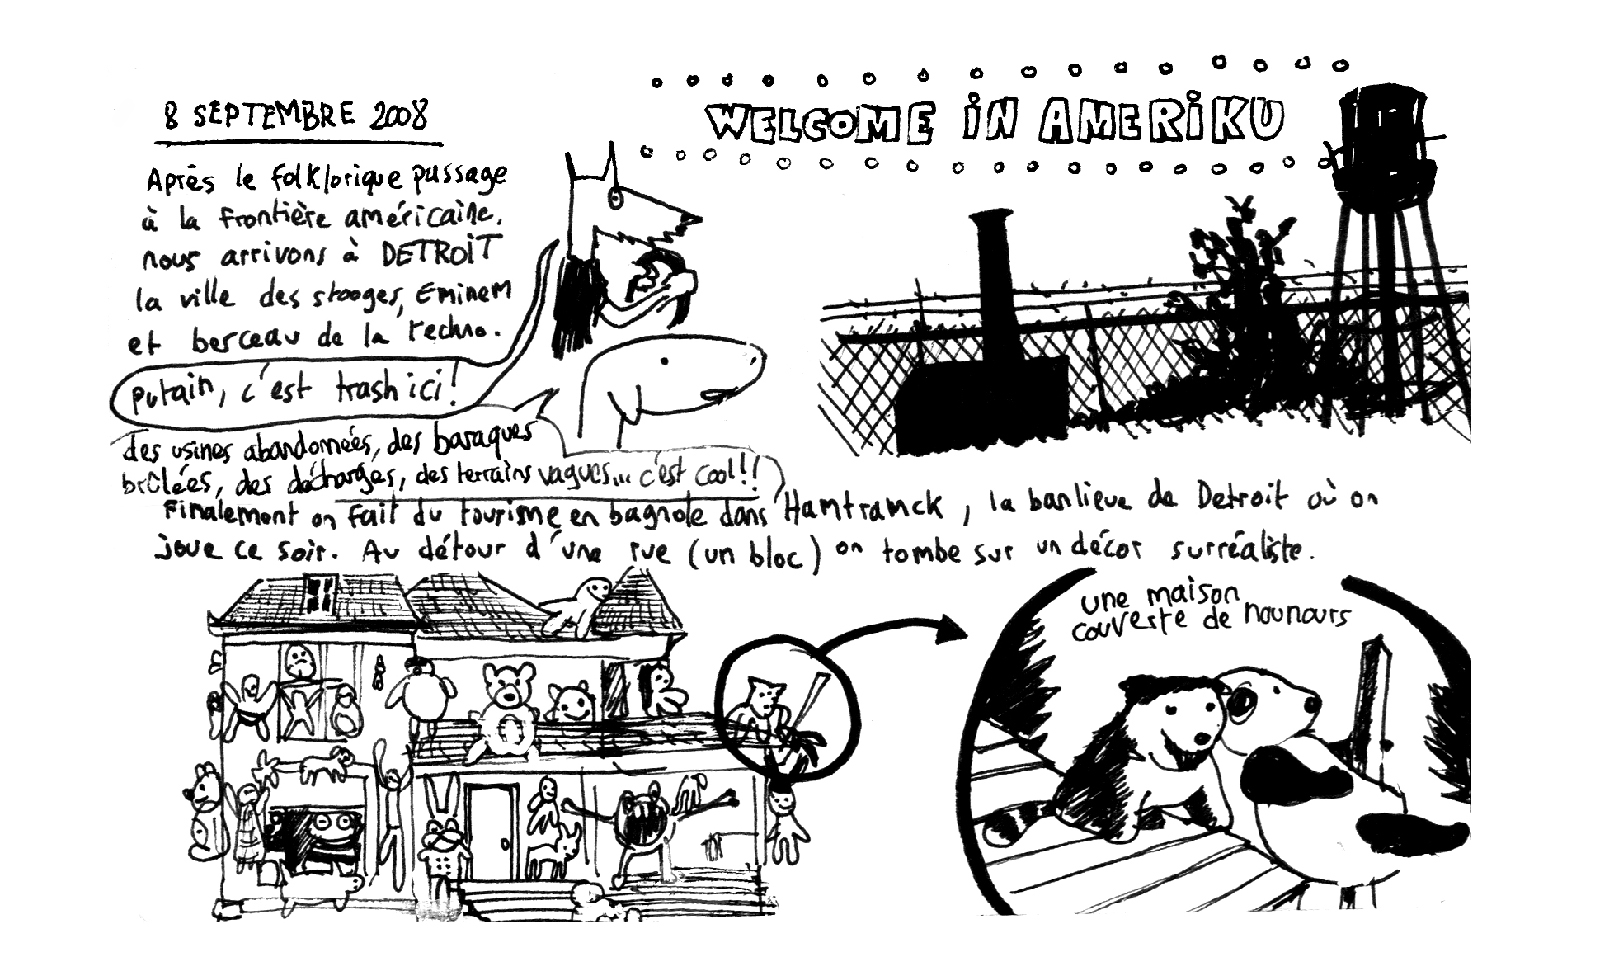 8 SEPTEMBRE 2008
WELCOME IN AMERIKU
Après le folklorique passage
à la frontière américaine,
nous arrivons à DETROIT
la ville des stooges, Eminem
et berceau de la techno.
putain, c'est trash ici!
des usines abandonnées, des baraques
brûlées, des décharges, des terrains vagues... c'est cool!!
Finalement on fait du tourisme en bagnole dans Hamtramck, la banlieue de Detroit où on
joue ce soir. Au détour d'une rue (un bloc) on tombe sur un décor surréaliste.
une maison
couverte de nounours